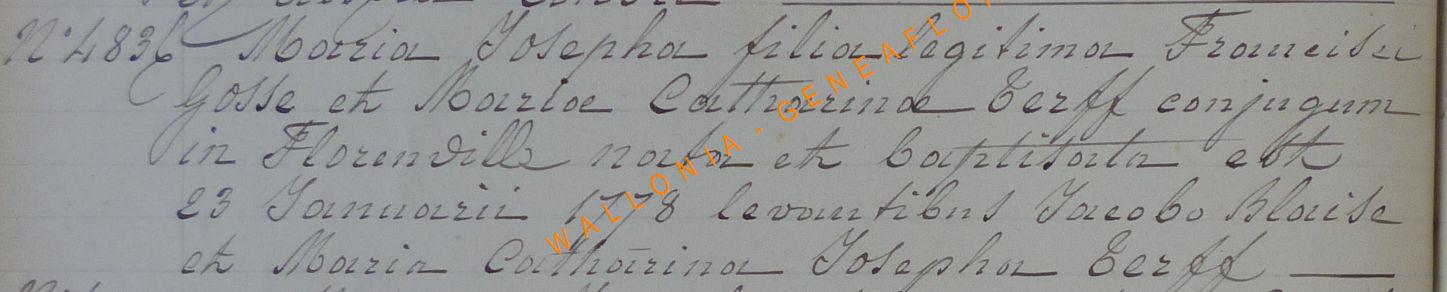 N° 4836 Maria Josepha filia legitima Francisci
Gosse et Mariæ Catharinæ Terff conjugum
in Florenville nata et baptisata est
23 Januarii 1778 levantibus Jacobo Blaise
et Maria Catharina Josepha Terff
WALLONIA - GENEAFLO